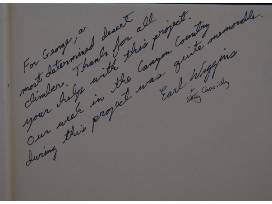 For George, a
most determined desert
climber. Thanks for all
your help with this project.
Our week in the Canyon Country
during this project was quite memorable.
Earl Wiggins